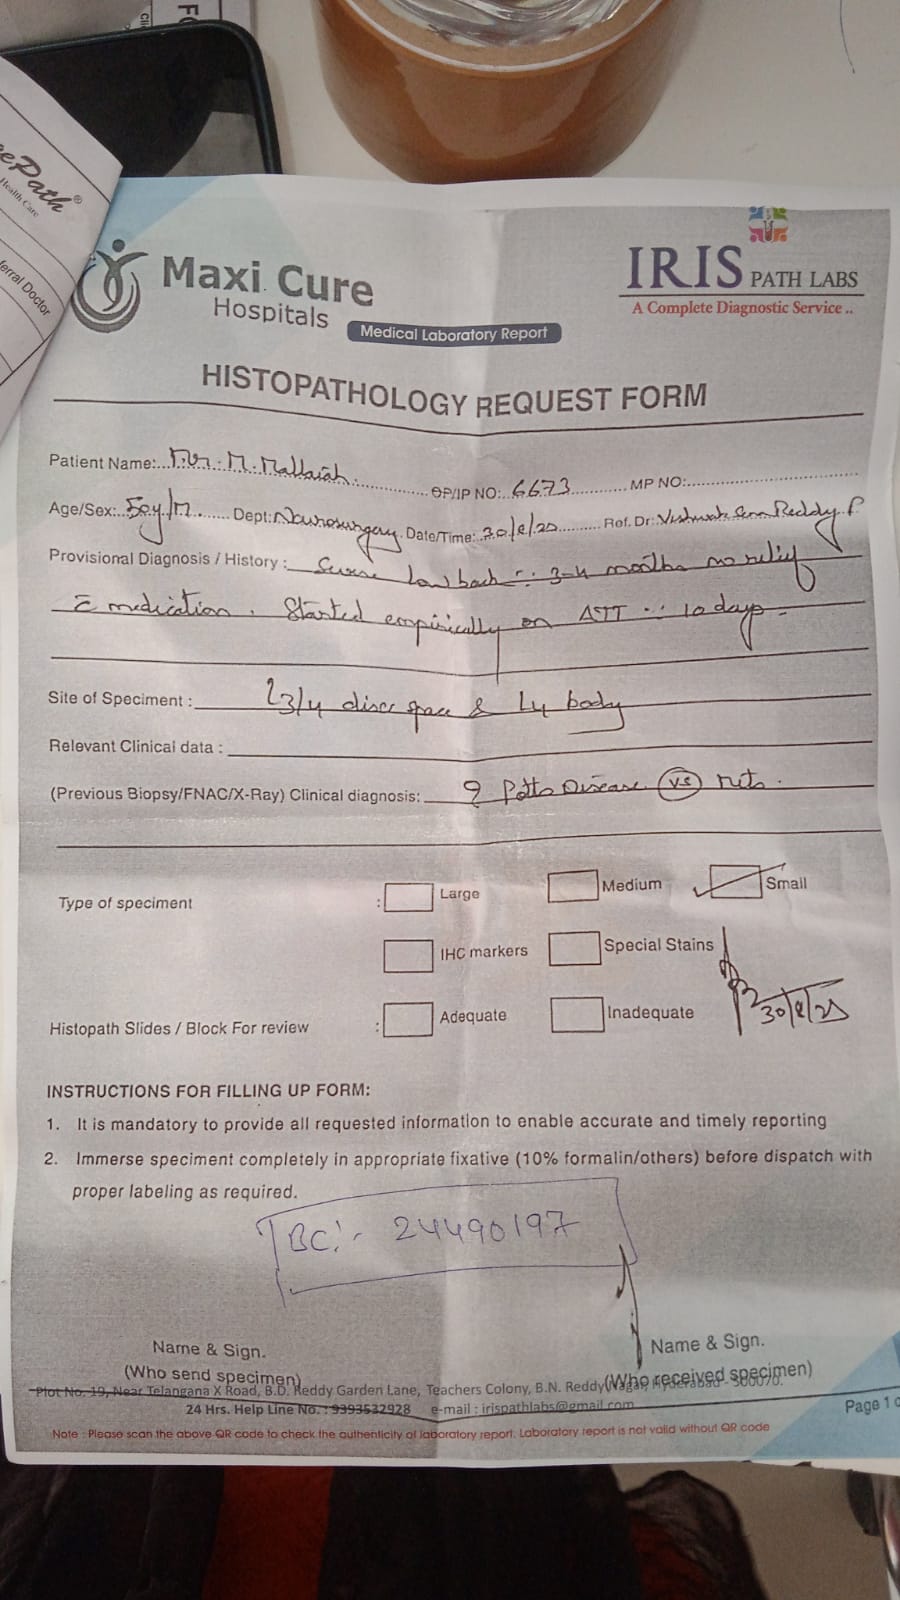 ePath®
Health Care
ferral Doctor
Maxi Cure
Hospitals
IRIS PATH LABS
A Complete Diagnostic Service ..
Medical Laboratory Report
HISTOPATHOLOGY REQUEST FORM
Patient Name: Mr. M. Mallaiah. OP/IP NO: 6673 MP NO:
Age/Sex: 50y/M Dept: Neurosurgery Date/Time: 30/8/25 Ref. Dr: Reddy. P
Provisional Diagnosis / History : Severe low back :: 3-4 months no relief
c̄ medication. Started empirically on ATT :: 10 days
Site of Speciment : L3/4 disc space & L4 body
Relevant Clinical data :
(Previous Biopsy/FNAC/X-Ray) Clinical diagnosis: ? Potts Disease vs mets.
Type of speciment : Large Medium Small
IHC markers Special Stains
Histopath Slides / Block For review : Adequate Inadequate
30/8/25
INSTRUCTIONS FOR FILLING UP FORM:
1. It is mandatory to provide all requested information to enable accurate and timely reporting
2. Immerse speciment completely in appropriate fixative (10% formalin/others) before dispatch with
proper labeling as required.
BC:- 24490197
Name & Sign.
(Who send specimen)
Name & Sign.
(Who received specimen)
Plot No. 19, Near Telangana X Road, B.D. Reddy Garden Lane, Teachers Colony, B.N. Reddy Nagar, Hyderabad - 500070.
24 Hrs. Help Line No. : 9393532928 e-mail : irispathlabs@gmail.com
Page 1 o
Note : Please scan the above QR code to check the authenticity of laboratory report. Laboratory report is not valid without QR code